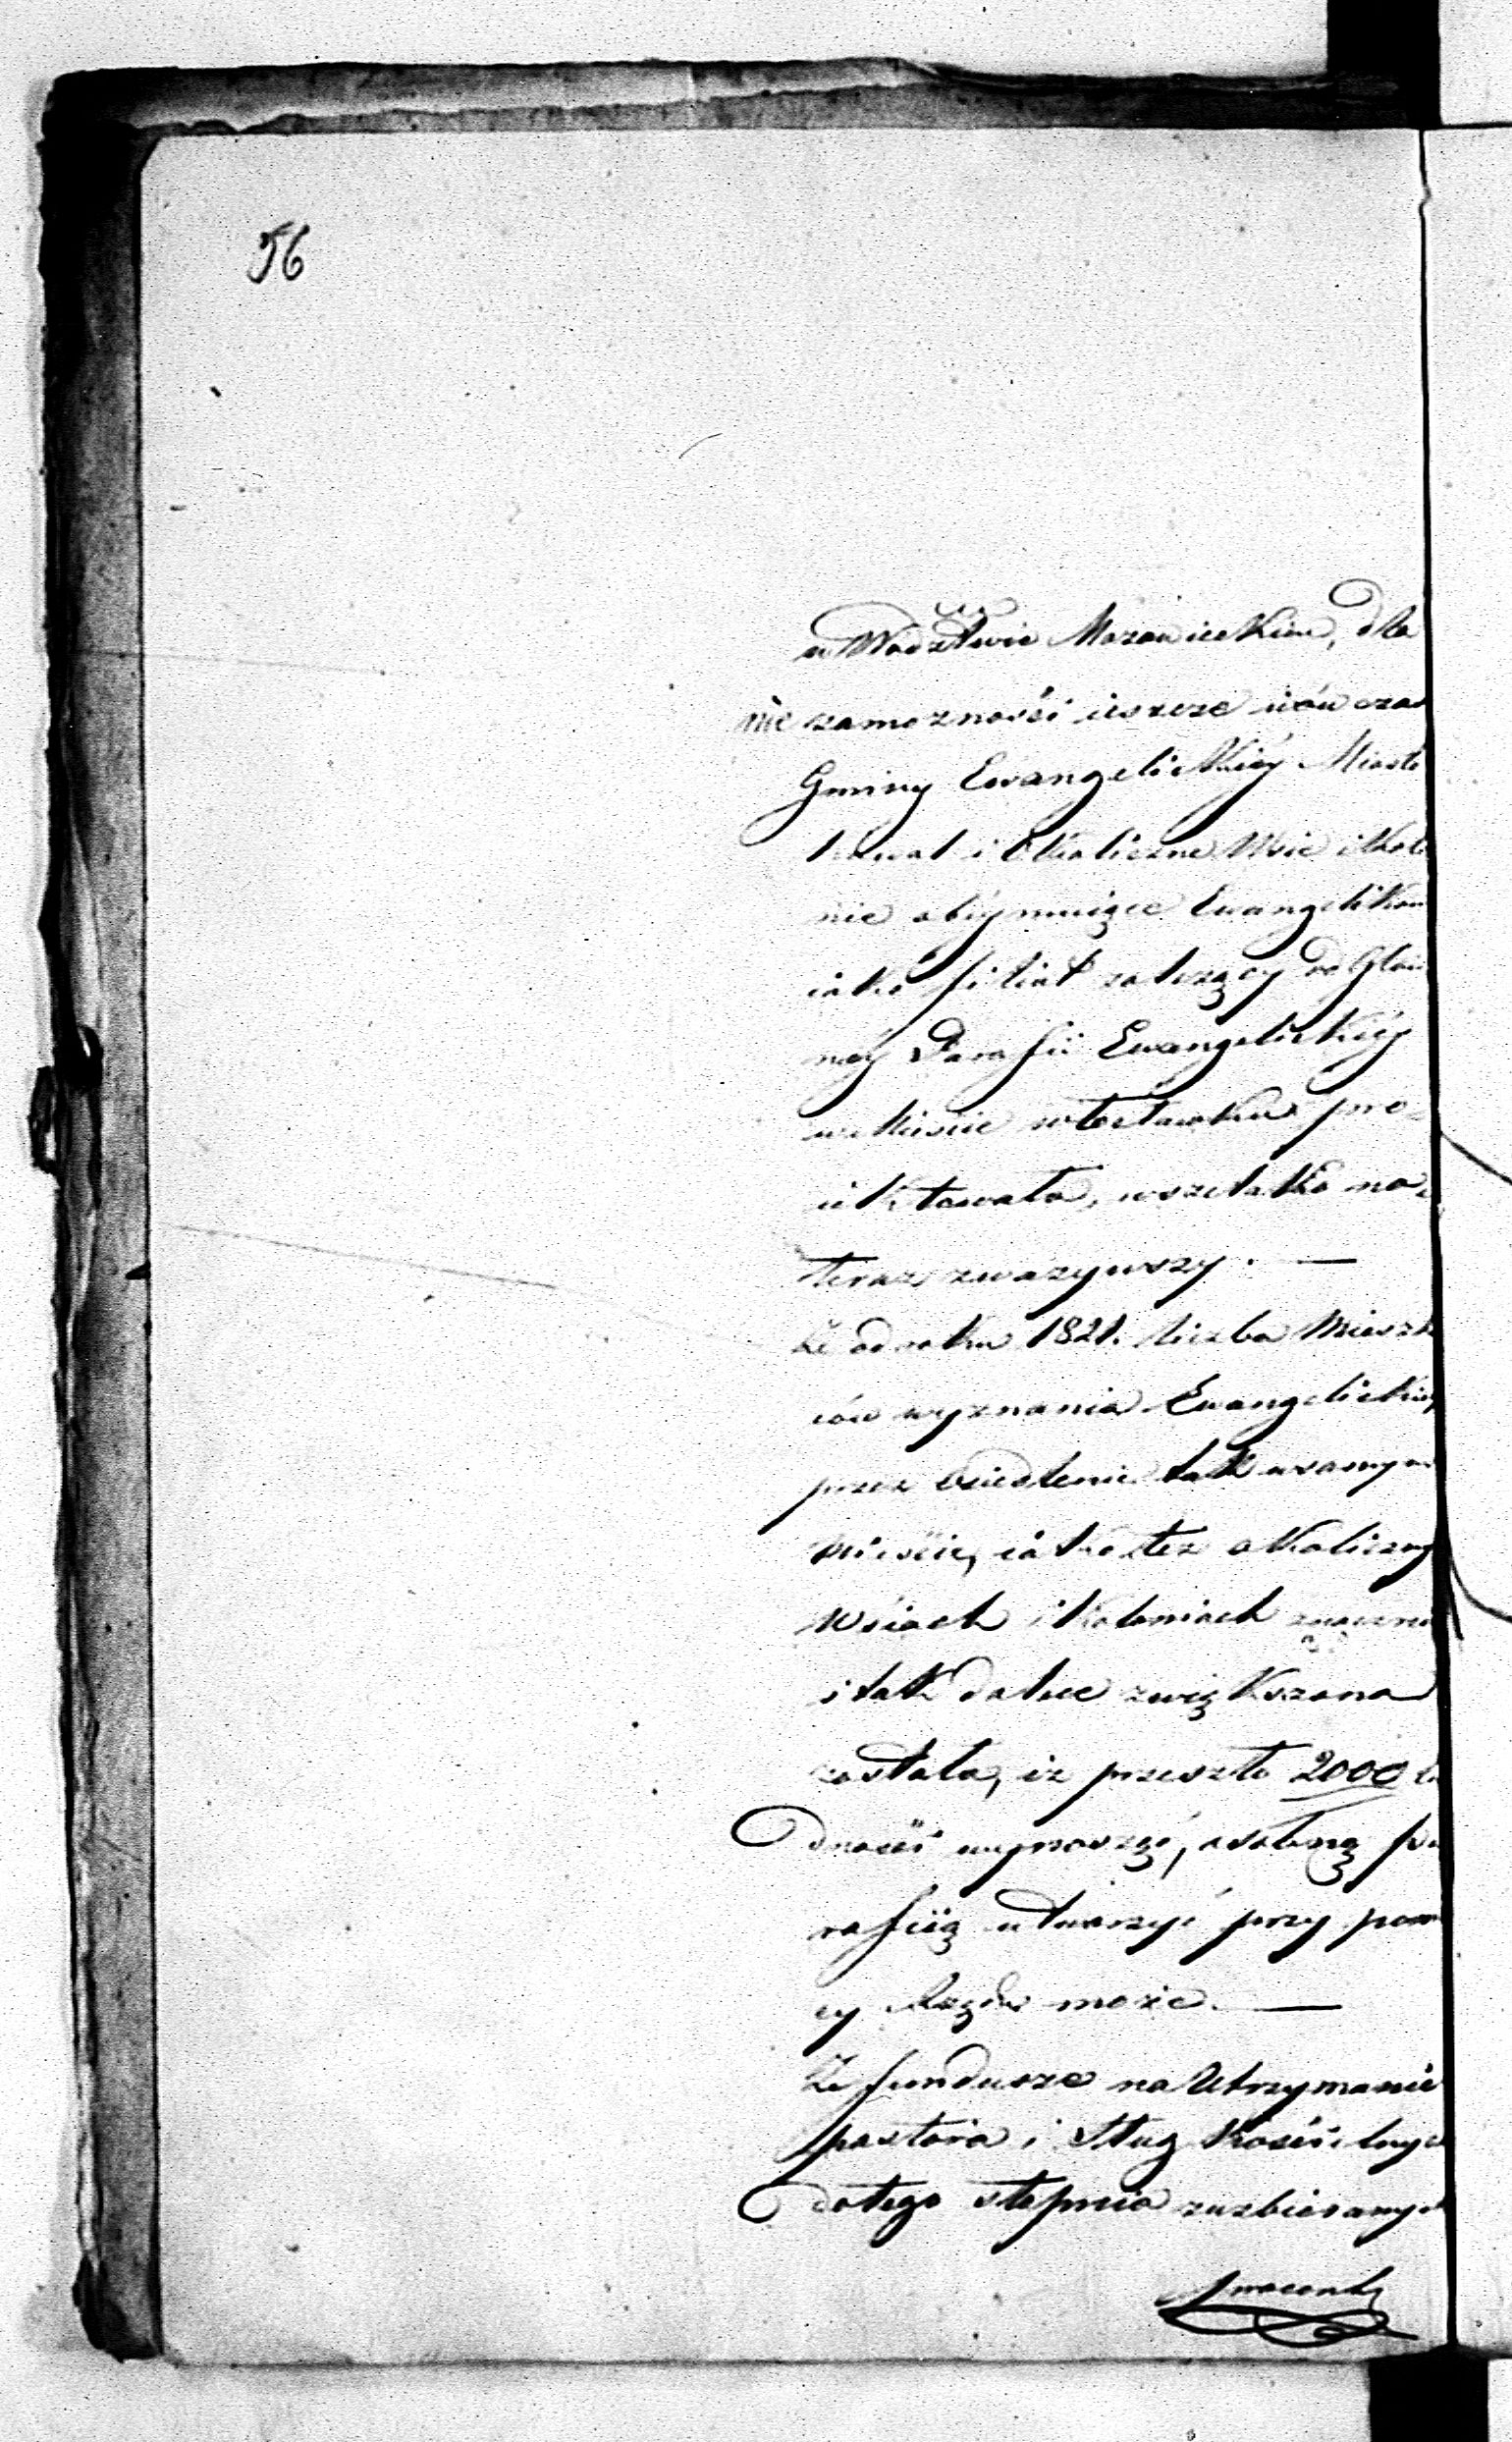 56
w Wodztwie Mazowieckim, dla
nie zamoznosći ieszcze wów czas
Gminy Ewangelickiéy Miasto
Kowal i Okoliczne Wsie i Kolo
nie obeymuiące Ewangelików
iako filiał należący do Głów
néy Parafii Ewangelickiéy
w Mieście Włocławku pro-
iektowała, wszelako na-
teraz zwazywszy. —
Że od roku 1821. liczba Mieszk
ców wyznania Ewangelickiey
przez Osiedlenie tak w samym
Mieście, iako tez okoliczny
Wsiach i Koloniach znacznie
i tak dalece zwiększona
została, iz przeszło 2000 lu
dnosći wynosząc, osobną pa
rafiią utworzyć przy pomo
cy Rządu może. —
Że fundusze na Utrzymanie
pastora i Sług Kosćielnych
do tego stopnia zuzbieranych
procent